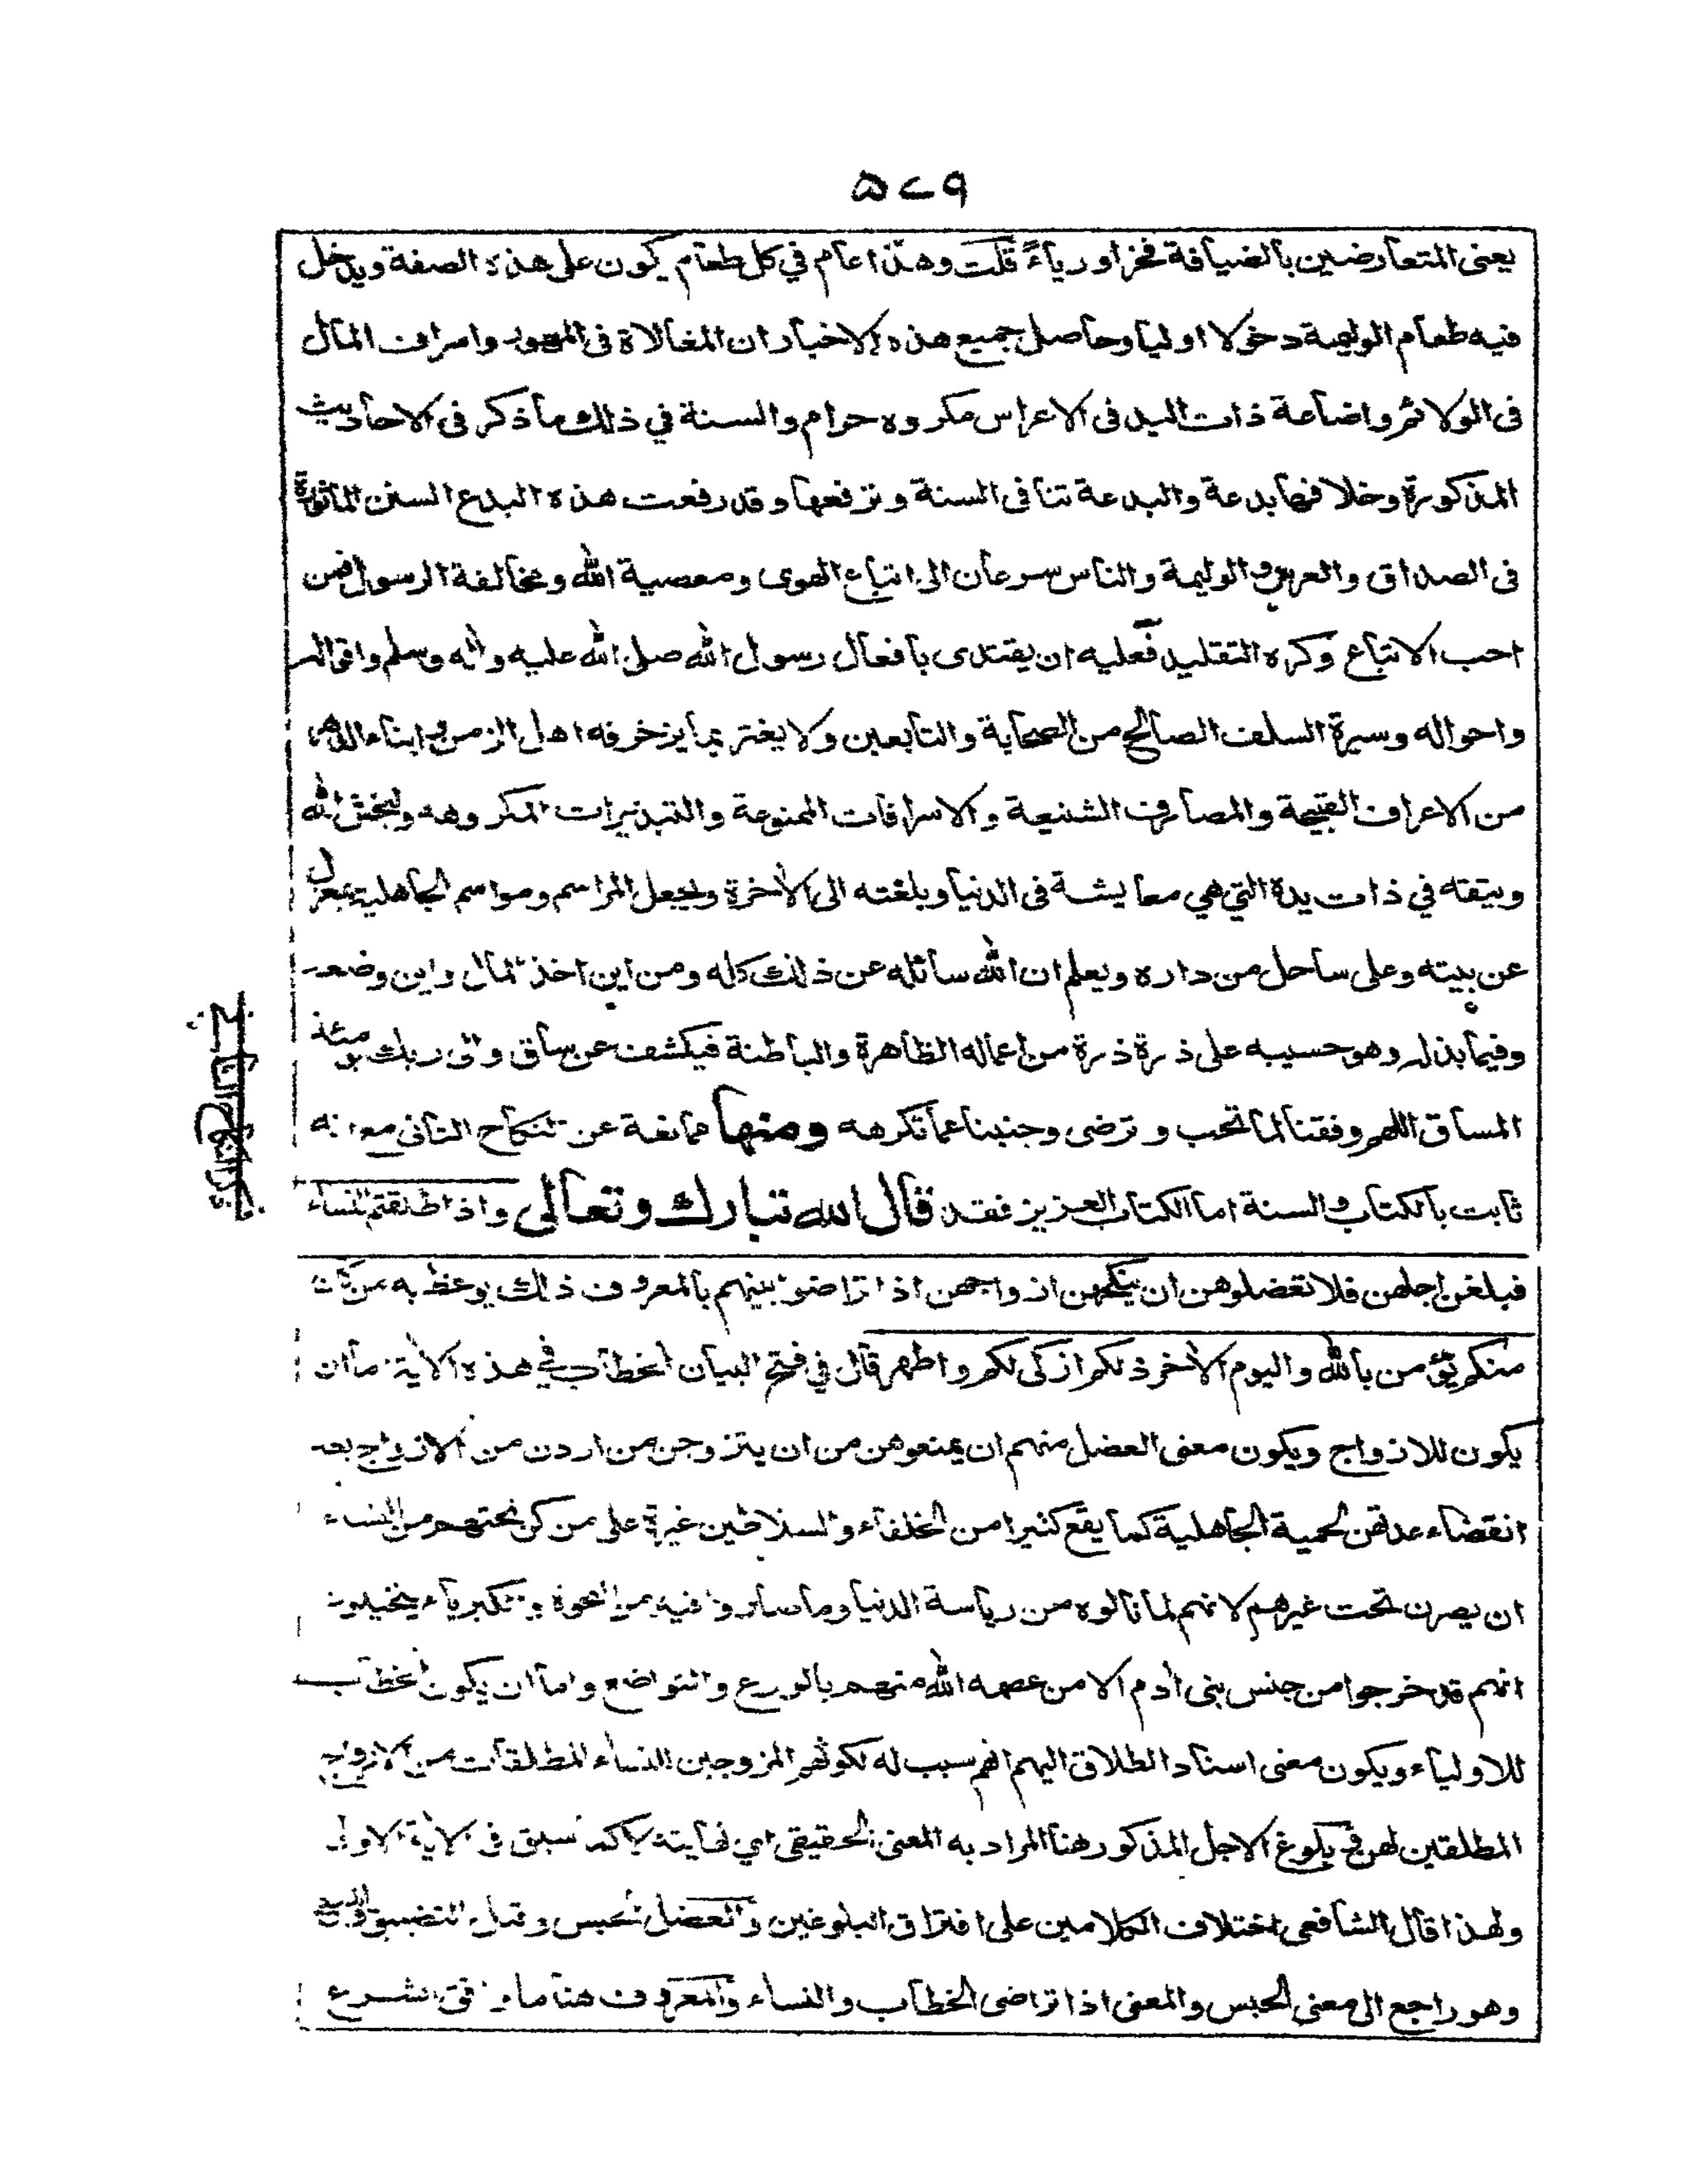 ۵۷۹
يعنى المتعارضين بالضيافة فخرا ورياءً قلت وهذا عام في كل طعام يكون على هذه الصفة ويدخل
فيه طعام الوليمة دخولا اوليا وحاصل جميع هذه الاخبار ان المغالاة فى المهور واسراف المال
فى الولائم واضاعة ذات اليد فى الاعراس مكروه حرام والسنة في ذلك ما ذكر فى الاحاديث
المذكورة وخلافها بدعة والبدعة تنافى السنة وترفعها وقد رفعت هذه البدع السنن الماثورة
فى الصداق والعرس والوليمة والناس سرعان الى اتباع الهوى ومعصية الله ومخالفة الرسول فمن
احب الاتباع وكره التقليد فعليه ان يقتدى بافعال رسول الله صلى الله عليه واله وسلم واقواله
واحواله وسيرة السلف الصالح من الصحابة والتابعين ولا يغتر بما يزخرفه اهل الزمن وابناء الدهر
من الاعراف القبيحة والمصارف الشنيعة والاسرافات الممنوعة والتبذيرات المكروهه وليخش الله
ويتقه في ذات يده التي هي معايشة فى الدنيا وبلغته الى الاخرة وليجعل المراسم ومواسم الجاهلية بمعزل
عن بيته وعلى ساحل من داره ويعلم ان الله سائله عن ذلك كله ومن اين اخذ المال واين وضعه
وفيما بذله وهو حسيبه على ذرة ذرة من اعماله الظاهرة والباطنة فيكشف عن ساق والى ربك يومئذ
المساق اللهم وفقنا لما تحب وترضى وجنبنا عما تكرهه ومنها ممانعة عن النكاح الثانى مع انه
ذكر النكاح الثانى
ثابت بالكتاب والسنة اما الكتاب العزيز فقد قال الله تبارك وتعالى واذا طلقتم النساء
فبلغن اجلهن فلا تعضلوهن ان ينكحن ازواجهن اذا تراضوا بينهم بالمعروف ذلك يوعظ به من كان
منكم يؤمن بالله واليوم الاخر ذلكم ازكى لكم واطهر قال في فتح البيان الخطاب في هذه الاية اما ان
يكون للازواج ويكون معنى العضل منهم ان يمنعوهن من ان يتزوجن من اردن من الازواج بعد
انقضاء عدتهن لحمية الجاهلية كما يقع كثيرا من الخلفاء والسلاطين غيرة على من كن تحتهم من النساء
ان يصرن تحت غيرهم لانهم لما نالوه من رياسة الدنيا وما صاروا فيه من النخوة والكبرياء يتخيلون
انهم قد خرجوا من جنس بنى أدم الا من عصمه الله منهم بالورع والتواضع واما ان يكون الخطاب
للاولياء ويكون معنى اسناد الطلاق اليهم انهم سبب له لكونهم المزوجين النساء المطلقات من الازواج
المطلقين لهن وبلوغ الاجل المذكور هنا المراد به المعنى الحقيقى اي نهايته لا كما سبق فى الاية الاولى
ولهذا قال الشافعى اختلاف الكلامين على افتراق البلوغين والعضل الحبس وقيل التضييق والمنع
وهو راجع الى معنى الحبس والمعنى اذا تراضى الخطاب والنساء والمعروف هنا ما وافق الشرع